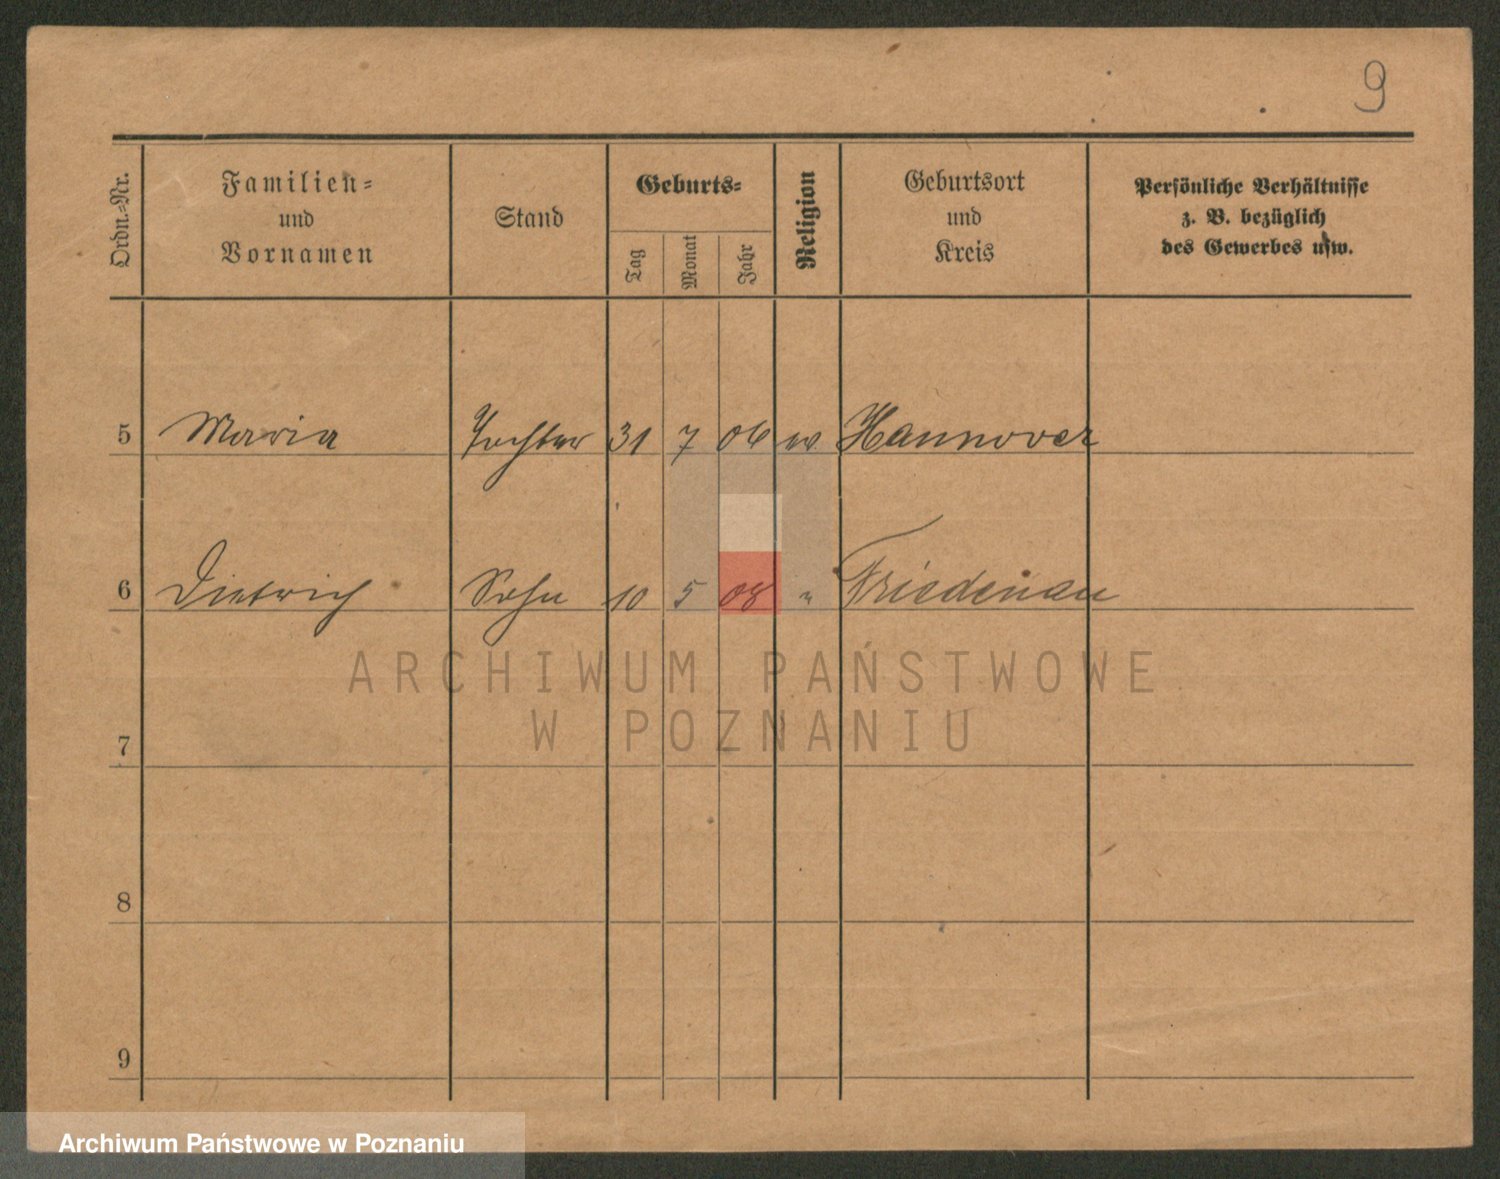 9
Ordn.-Nr.
Familien-
und
Vornamen
Stand
Geburts-
Tag
Monat
Jahr
Religion
Geburtsort
und
Kreis
Persönliche Verhältnisse
z. B. bezüglich
des Gewerbes usw.
5 Maria Tochter 31 7 06 ev Hannover
6 Dietrich Sohn 10 5 08 " Friedenau
ARCHIWUM PAŃSTWOWE
W POZNANIU
7
8
9
Archiwum Państwowe w Poznaniu